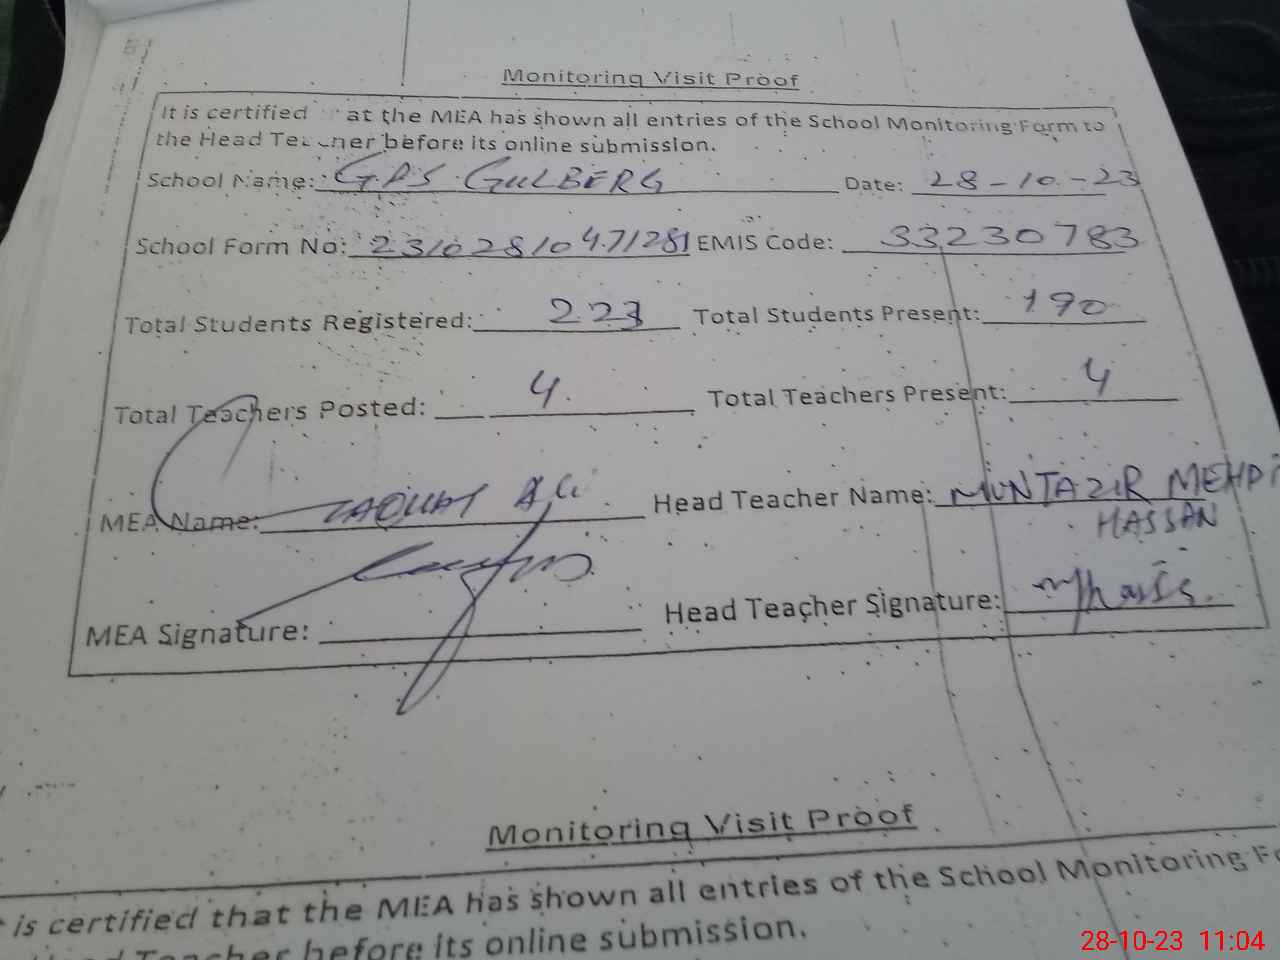 Monitoring Visit Proof
It is certified at the MEA has shown all entries of the School Monitoring Form to
the Head Teacher before its online submission.
School Name: GPS GULBERG Date: 28-10-23
School Form No: 23102810471281 EMIS Code: 33230783
Total Students Registered: 223 Total Students Present: 190
Total Teachers Posted: 4 Total Teachers Present: 4
MEA Name: Head Teacher Name: MUNTAZIR MEHDI
HASSAN
MEA Signature: Head Teacher Signature:
Monitoring Visit Proof
is certified that the MEA has shown all entries of the School Monitoring Fo
Teacher before its online submission.
28-10-23 11:04